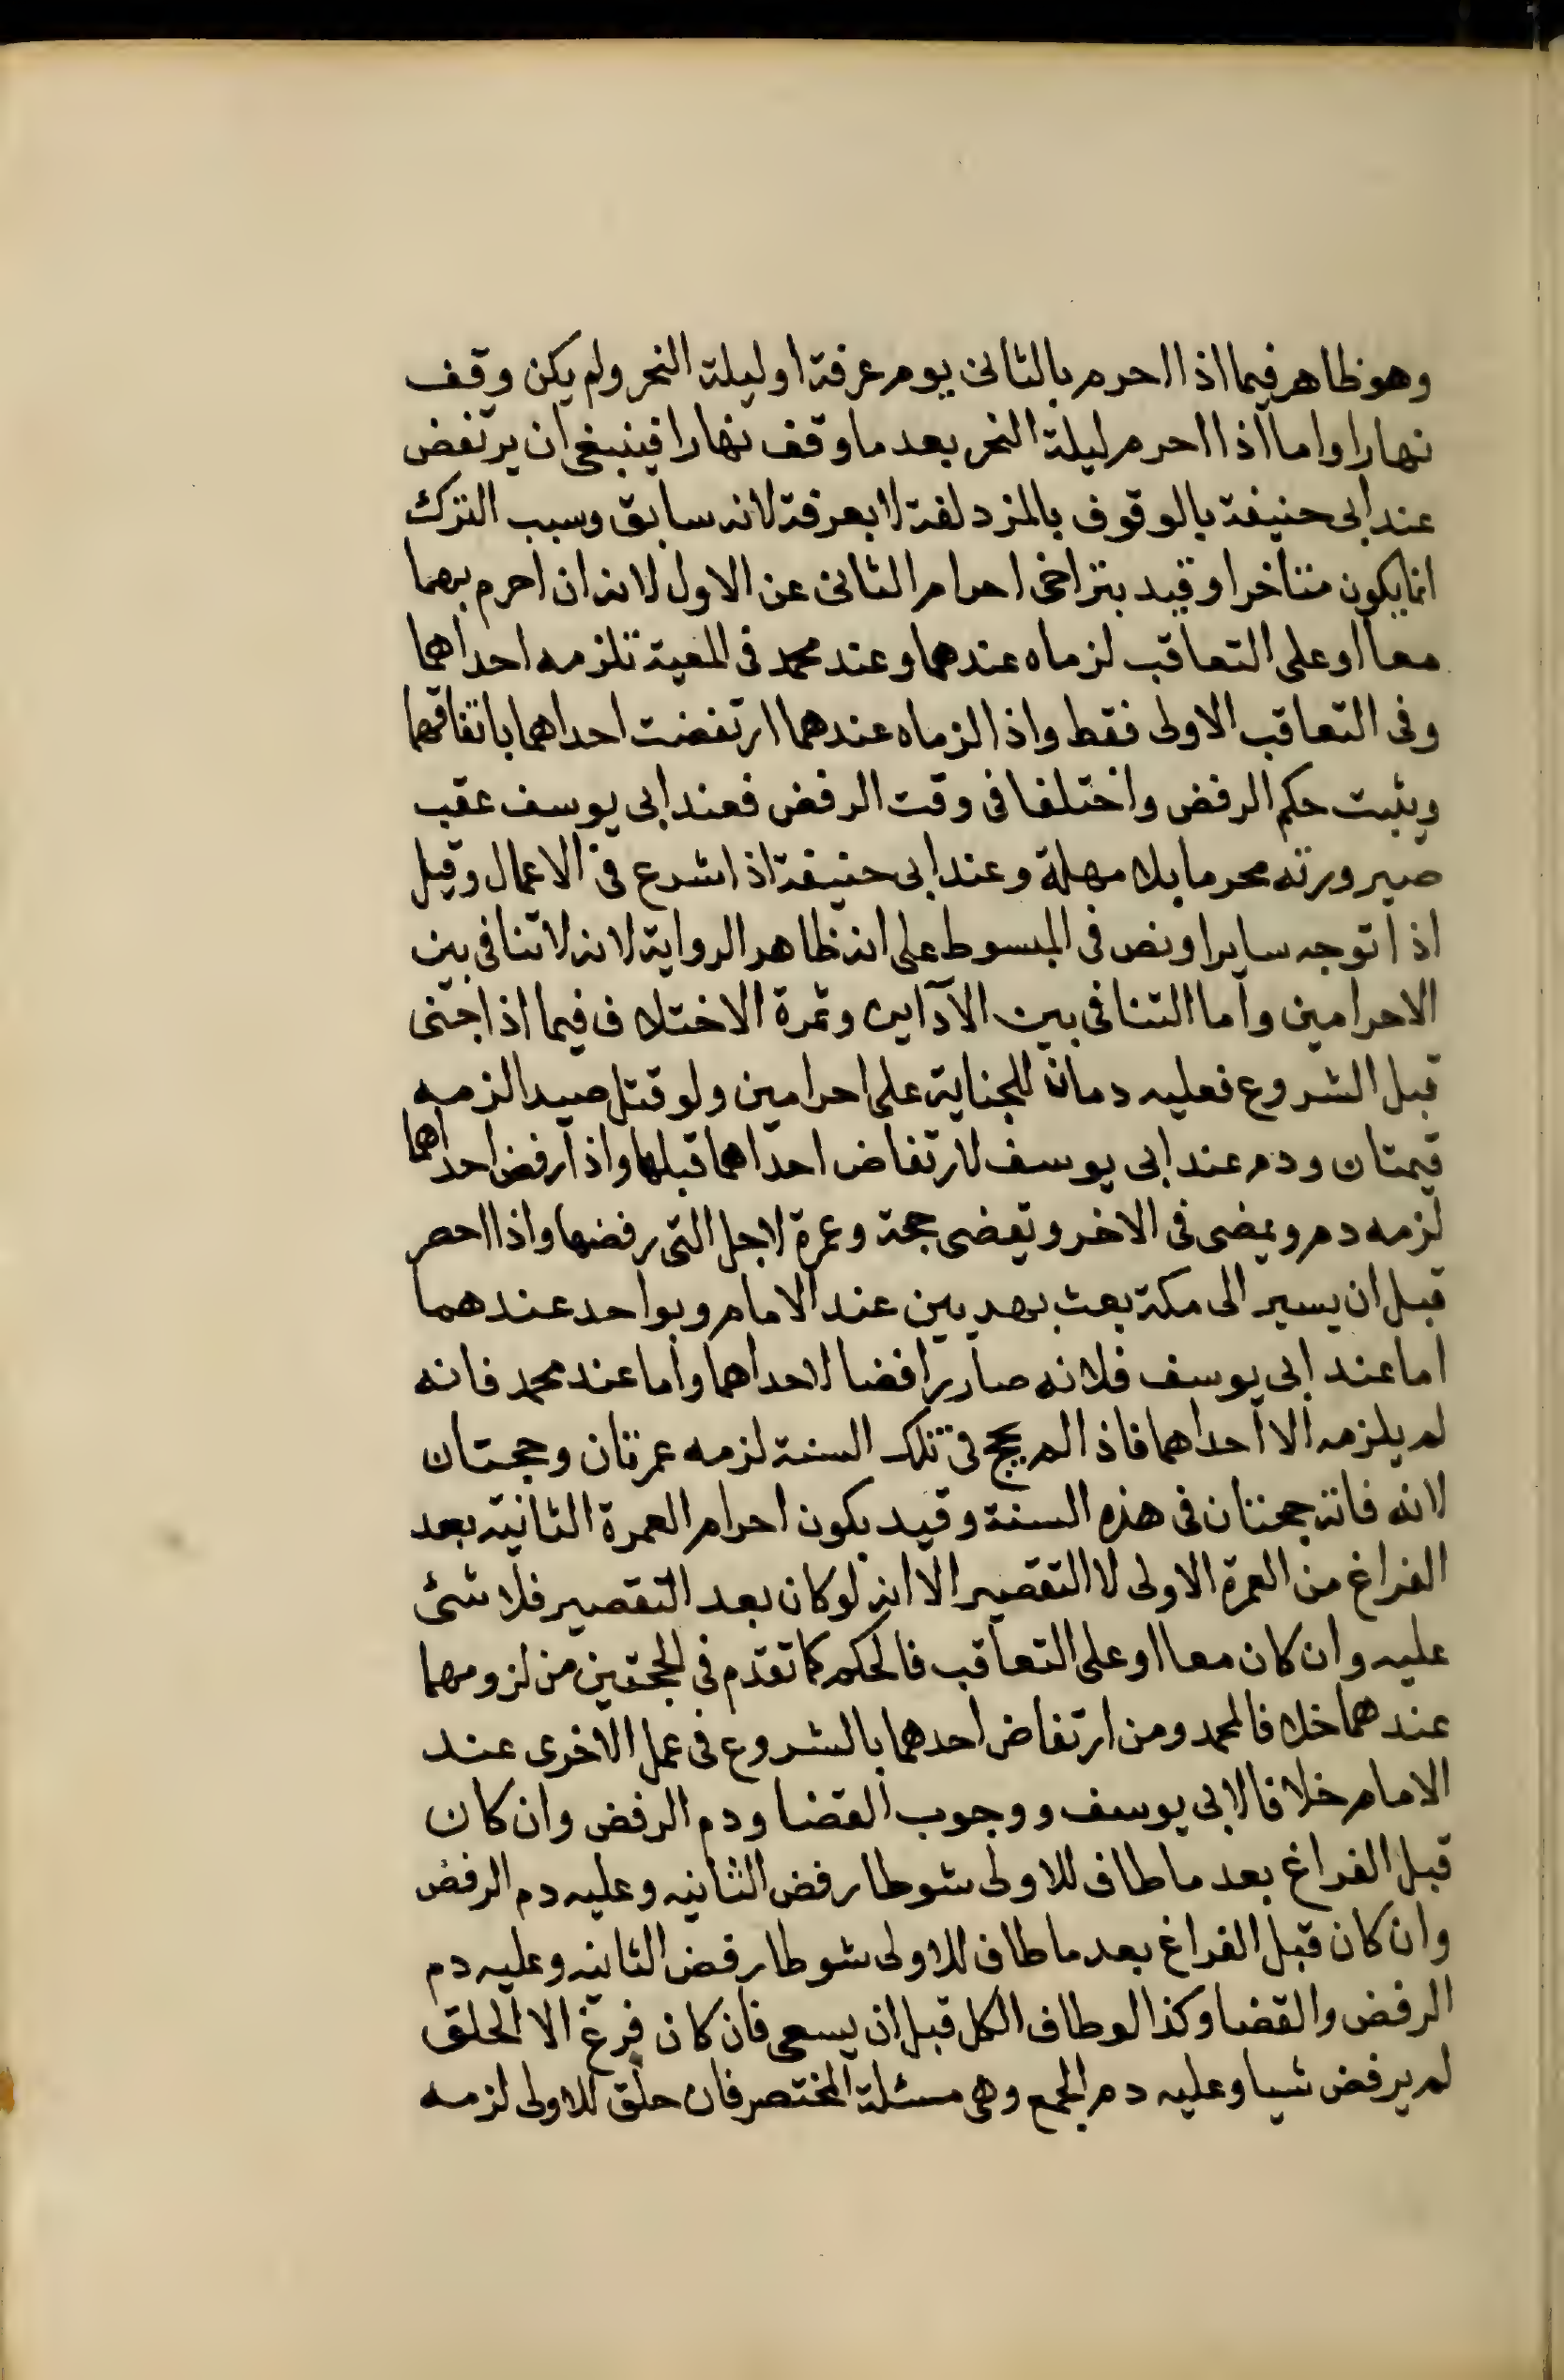 وهو ظاهر فيما اذا احرم بالثانى يوم عرفة او ليلة النحر ولم يكن وقف
نهارا واما اذا احرم ليلة النحر بعد ما وقف نهارا فينبغى ان يرتفض
عند ابى حنيفة بالوقوف بالمزدلفة لا بعرفة لانه سابق وسبب الترك
انما يكون متاخرا وقيد بتراخى احرام الثانى عن الاول لانه ان احرم بهما
معا او على التعاقب لزماه عندهما وعند محمد فى المعية تلزمه احداهما
وفى التعاقب الاولى فقط واذا لزماه عندهما ارتفضت احداهما باتفاقهما
ويثبت حكم الرفض واختلفا فى وقت الرفض فعند ابى يوسف عقب
صيرورته محرما بلا مهلة وعند ابى حنيفة اذا شرع فى الاعمال وقيل
اذا توجه سايرا ونص فى المبسوط على انه ظاهر الرواية لانه لا تنافى بين
الاحرامين واما التنافى بين الآداين وثمرة الاختلاف فيما اذا جنى
قبل الشروع فعليه دمان للجناية على احرامين ولو قتل صيدا لزمه
قيمتان ودم عند ابى يوسف لارتفاض احداهما قبلها واذا رفض احداهما
لزمه دم ويمضى فى الاخر وتقضى حجة وعمرة لاجل التى رفضها واذا احصر
قبل ان يسير الى مكة بعث بهديين عند الامام وبواحد عندهما
اما عند ابى يوسف فلانه صار رافضا لاحداهما واما عند محمد فانه
لم يلزمه الا احداهما فاذا لم يحج فى تلك السنة لزمه عمرتان وحجتان
لانه فاتته حجتان فى هذه السنة وقيد بكون احرام العمرة الثانية بعد
الفراغ من العمرة الاولى لا التقصير الا انه لو كان بعد التقصير فلا شئ
عليه وان كان معا او على التعاقب فالحكم كما تقدم فى الحجتين من لزومهما
عندهما خلافا لمحمد ومن ارتفاض احدهما بالشروع فى عمل الاخرى عند
الامام خلافا لابى يوسف ووجوب القضا ودم الرفض وان كان
قبل الفراغ بعد ما طاف للاولى شوطا رفض الثانيه وعليه دم الرفض
وان كان قبل الفراغ بعد ما طاف للاولى شوطا رفض الثانيه وعليه دم
الرفض والقضا وكذا لو طاف الكل قبل ان يسعى فان كان فرغ الا الحلق
لم يرفض شيا وعليه دم الجمع وهى مسئلة المختصر فان حلق للاولى لزمه